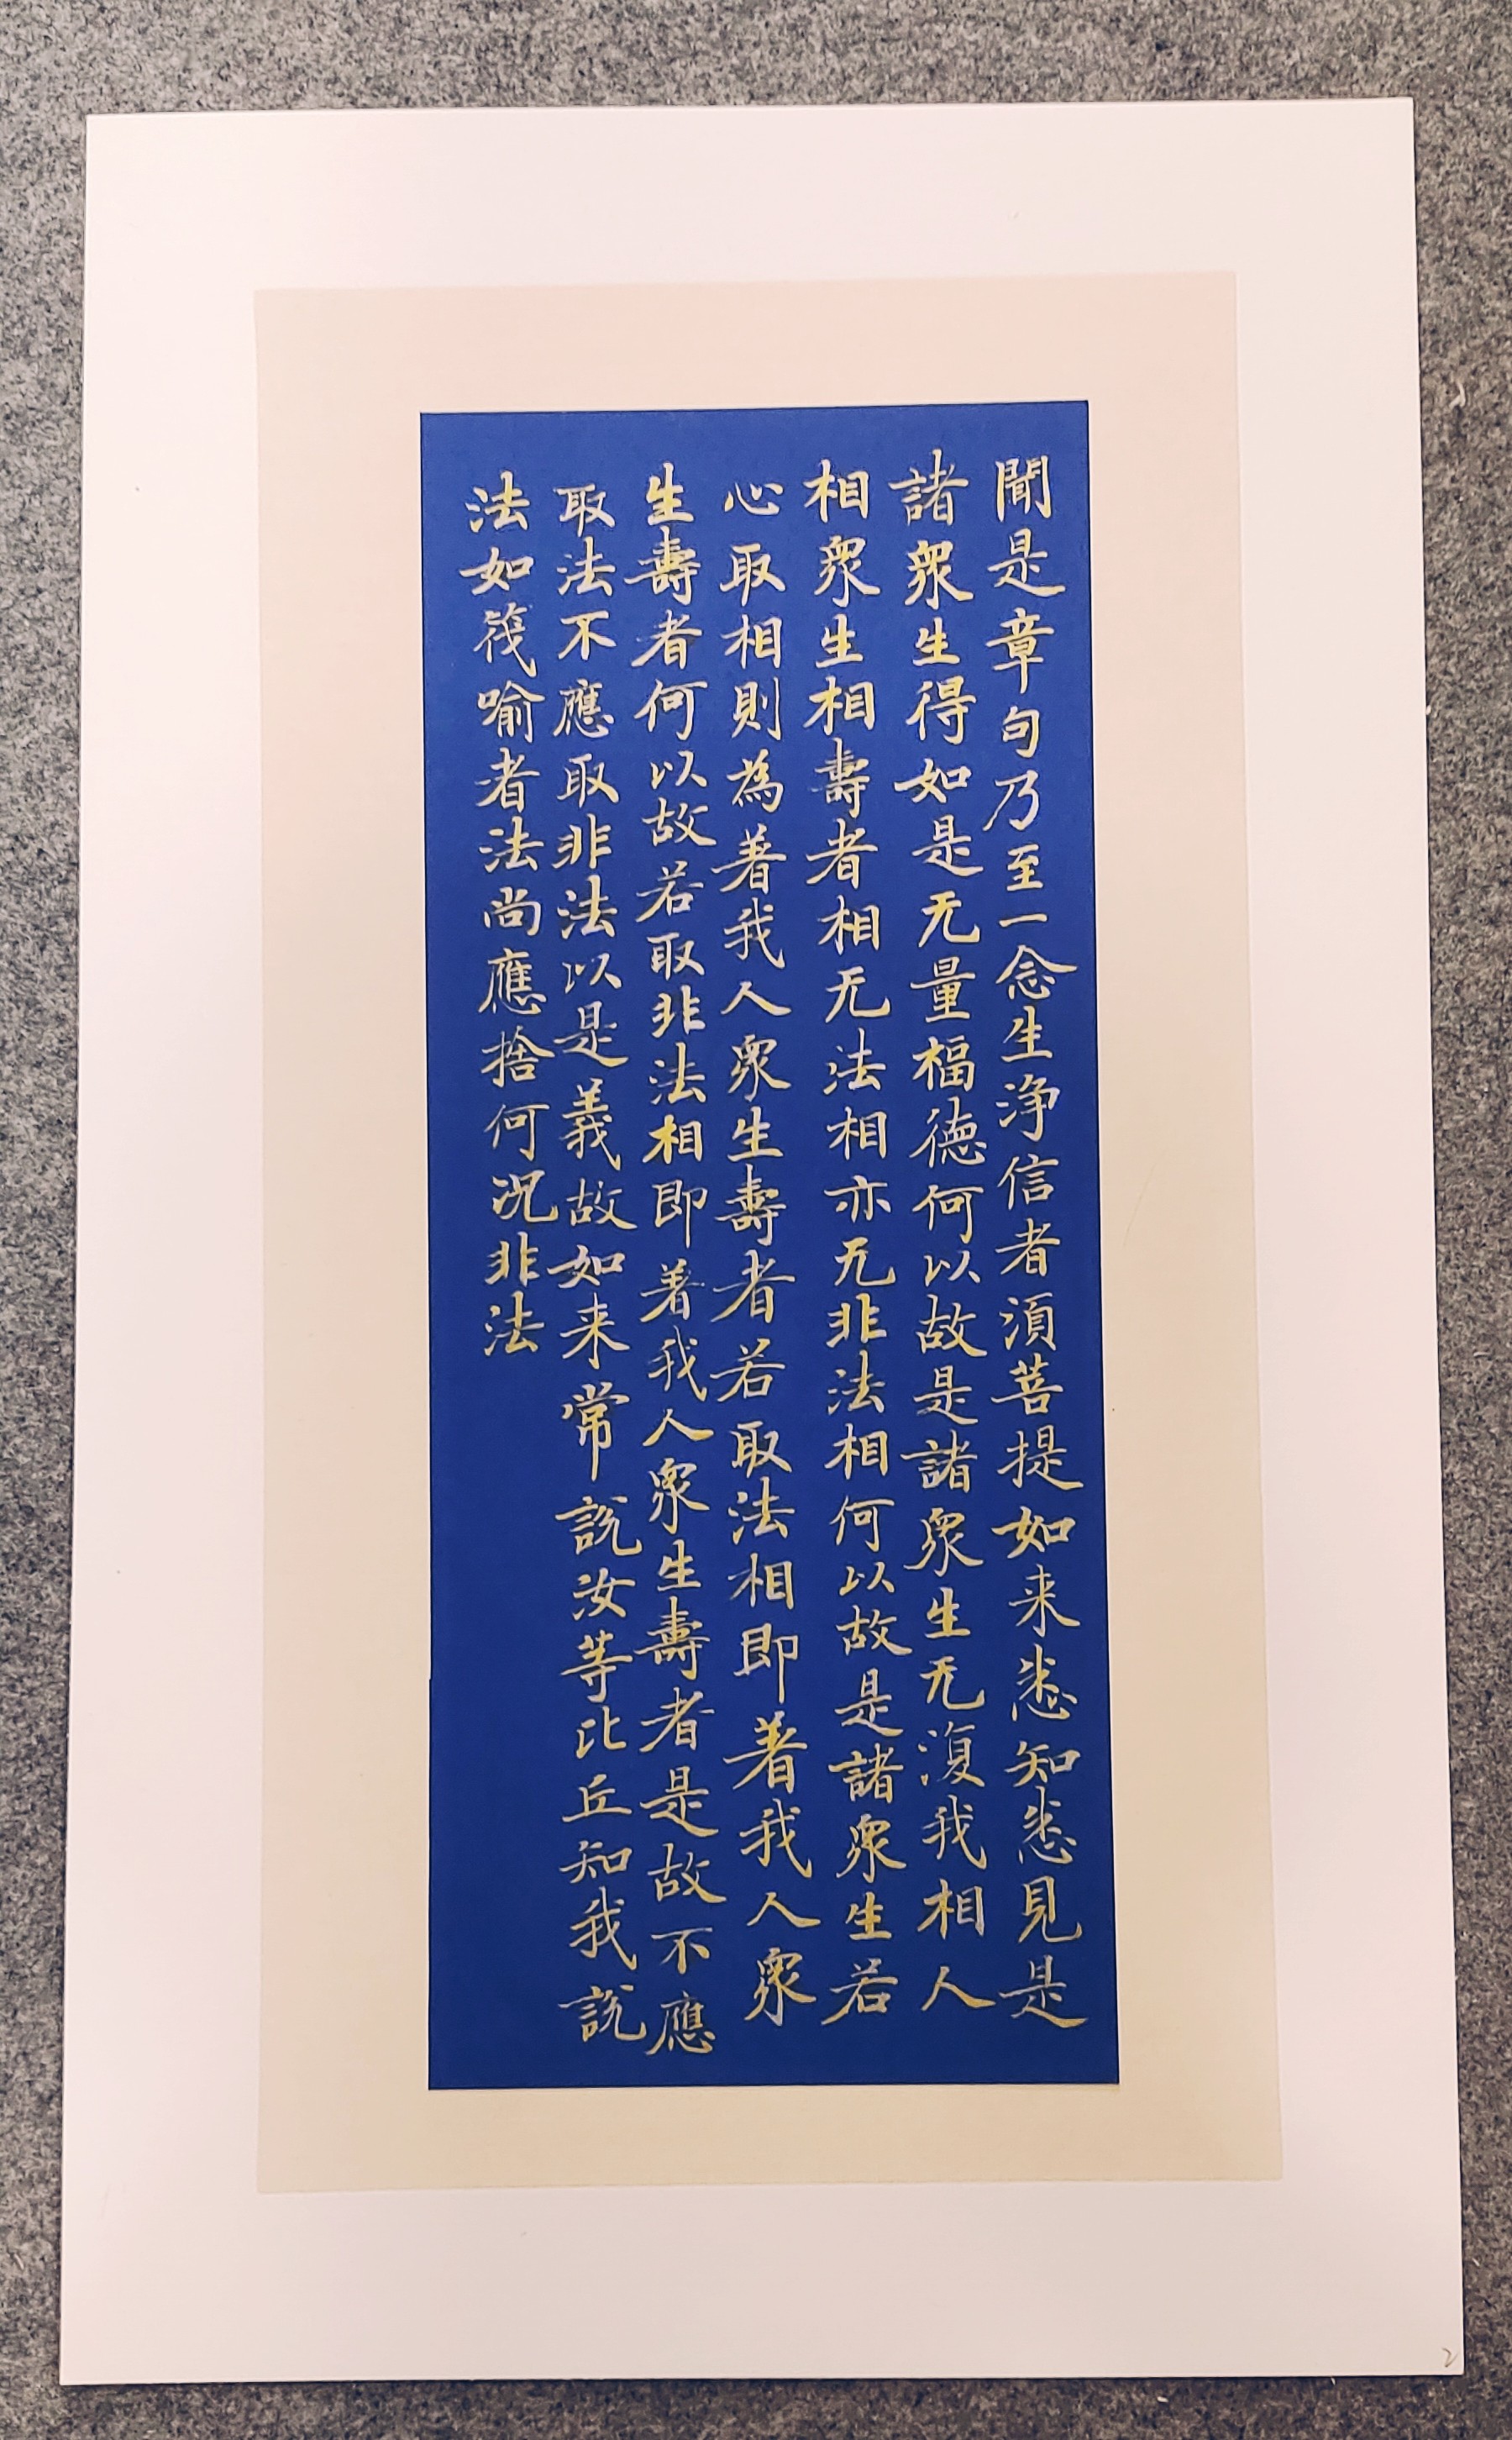 聞是章句乃至一念生淨信者湏菩提如来悉知悉見是
諸衆生得如是无量福德何以故是諸衆生无復我相人
相衆生相壽者相无法相亦无非法相何以故是諸衆生若
心取相則為著我人衆生壽者若取法相即著我人衆
生壽者何以故若取非法相即著我人衆生壽者是故不應
取法不應取非法以是義故如来常說汝等比丘知我說
法如筏喻者法尚應捨何況非法
2